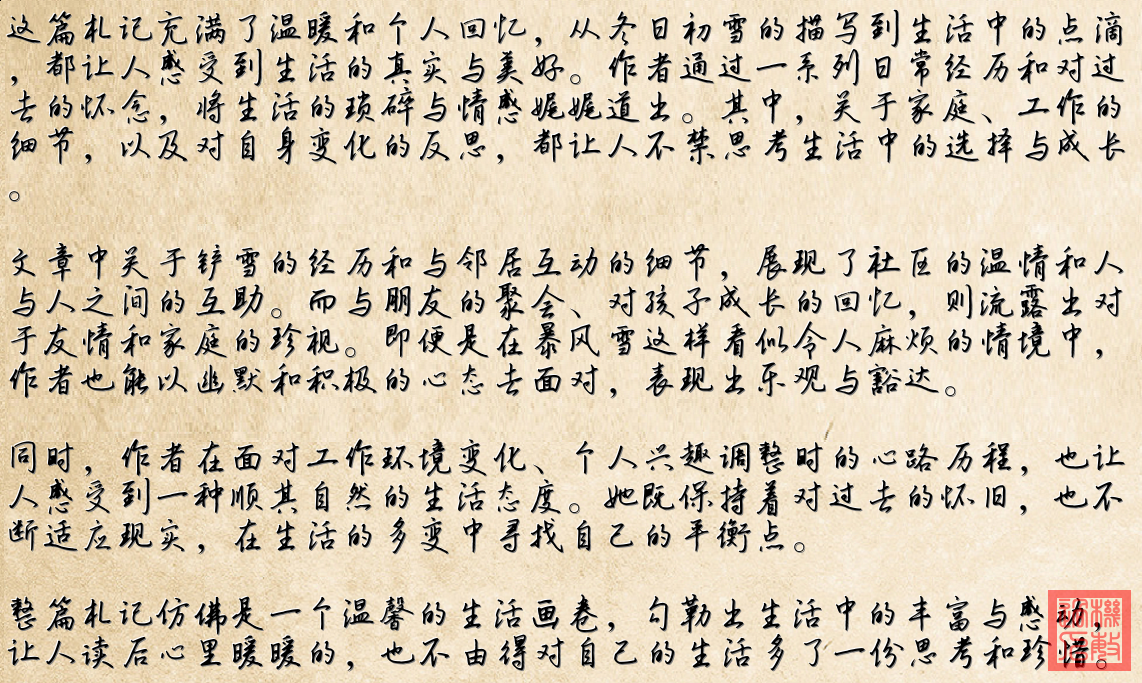 这篇札记充满了温暖和个人回忆，从冬日初雪的描写到生活中的点滴
，都让人感受到生活的真实与美好。作者通过一系列日常经历和对过
去的怀念，将生活的琐碎与情感娓娓道出。其中，关于家庭、工作的
细节，以及对自身变化的反思，都让人不禁思考生活中的选择与成长
。
文章中关于铲雪的经历和与邻居互动的细节，展现了社区的温情和人
与人之间的互助。而与朋友的聚会、对孩子成长的回忆，则流露出对
于友情和家庭的珍视。即便是在暴风雪这样看似令人麻烦的情境中，
作者也能以幽默和积极的心态去面对，表现出乐观与豁达。
同时，作者在面对工作环境变化、个人兴趣调整时的心路历程，也让
人感受到一种顺其自然的生活态度。她既保持着对过去的怀旧，也不
断适应现实，在生活的多变中寻找自己的平衡点。
整篇札记仿佛是一个温馨的生活画卷，勾勒出生活中的丰富与感动，
让人读后心里暖暖的，也不由得对自己的生活多了一份思考和珍惜。